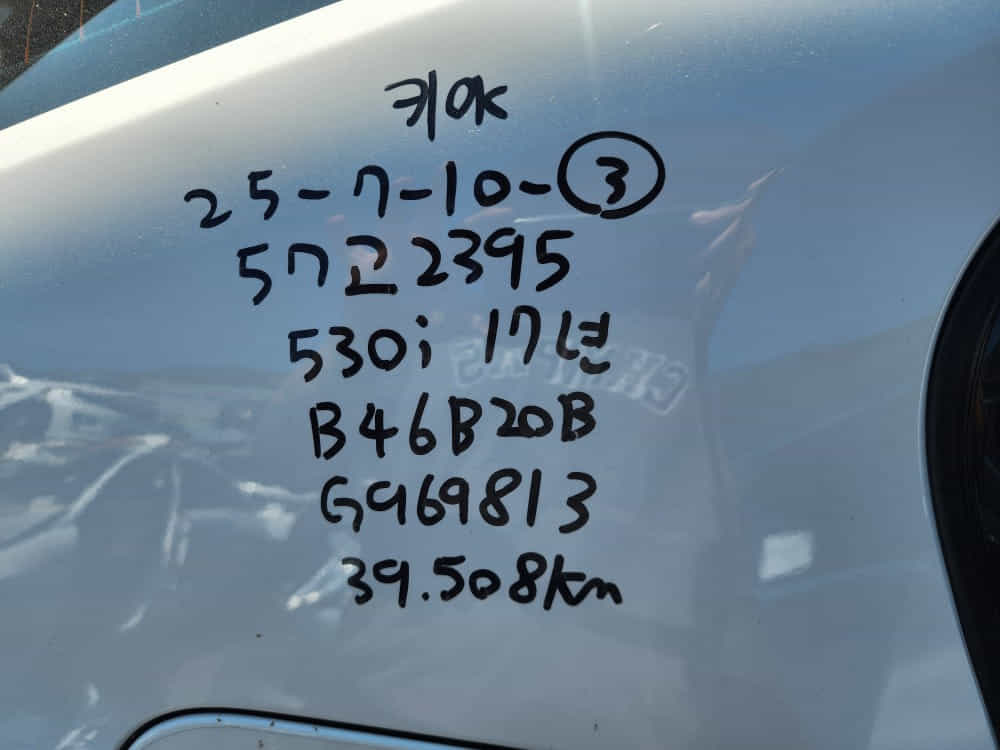 키OK
25-7-10-③
57고2395
530i 17년
B46B20B
G969813
39.508km